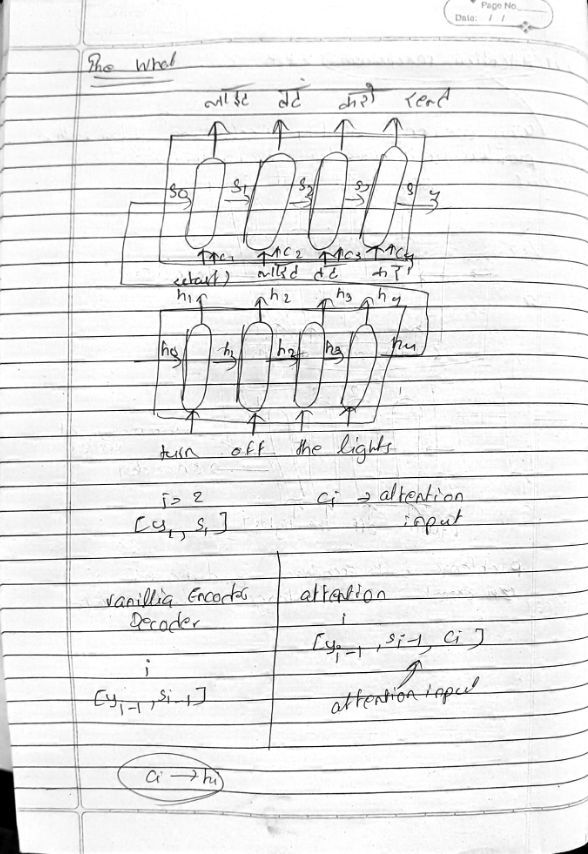 Page No.
Date: / /
The What
लाईट बंद करो
S0 S1 S2 S3
C1 C2 C3 C4
(start) लाईट बंद करो
h1 h2 h3 h4
h0 h1 h2 h3 h4
turn off the lights
i = 2 Ci → attention
[y1, S1] input
vanillia Encoder attention
Decoder i
[yi-1, si-1, Ci]
i
[yi-1, si-1] attention input
Ci → hi